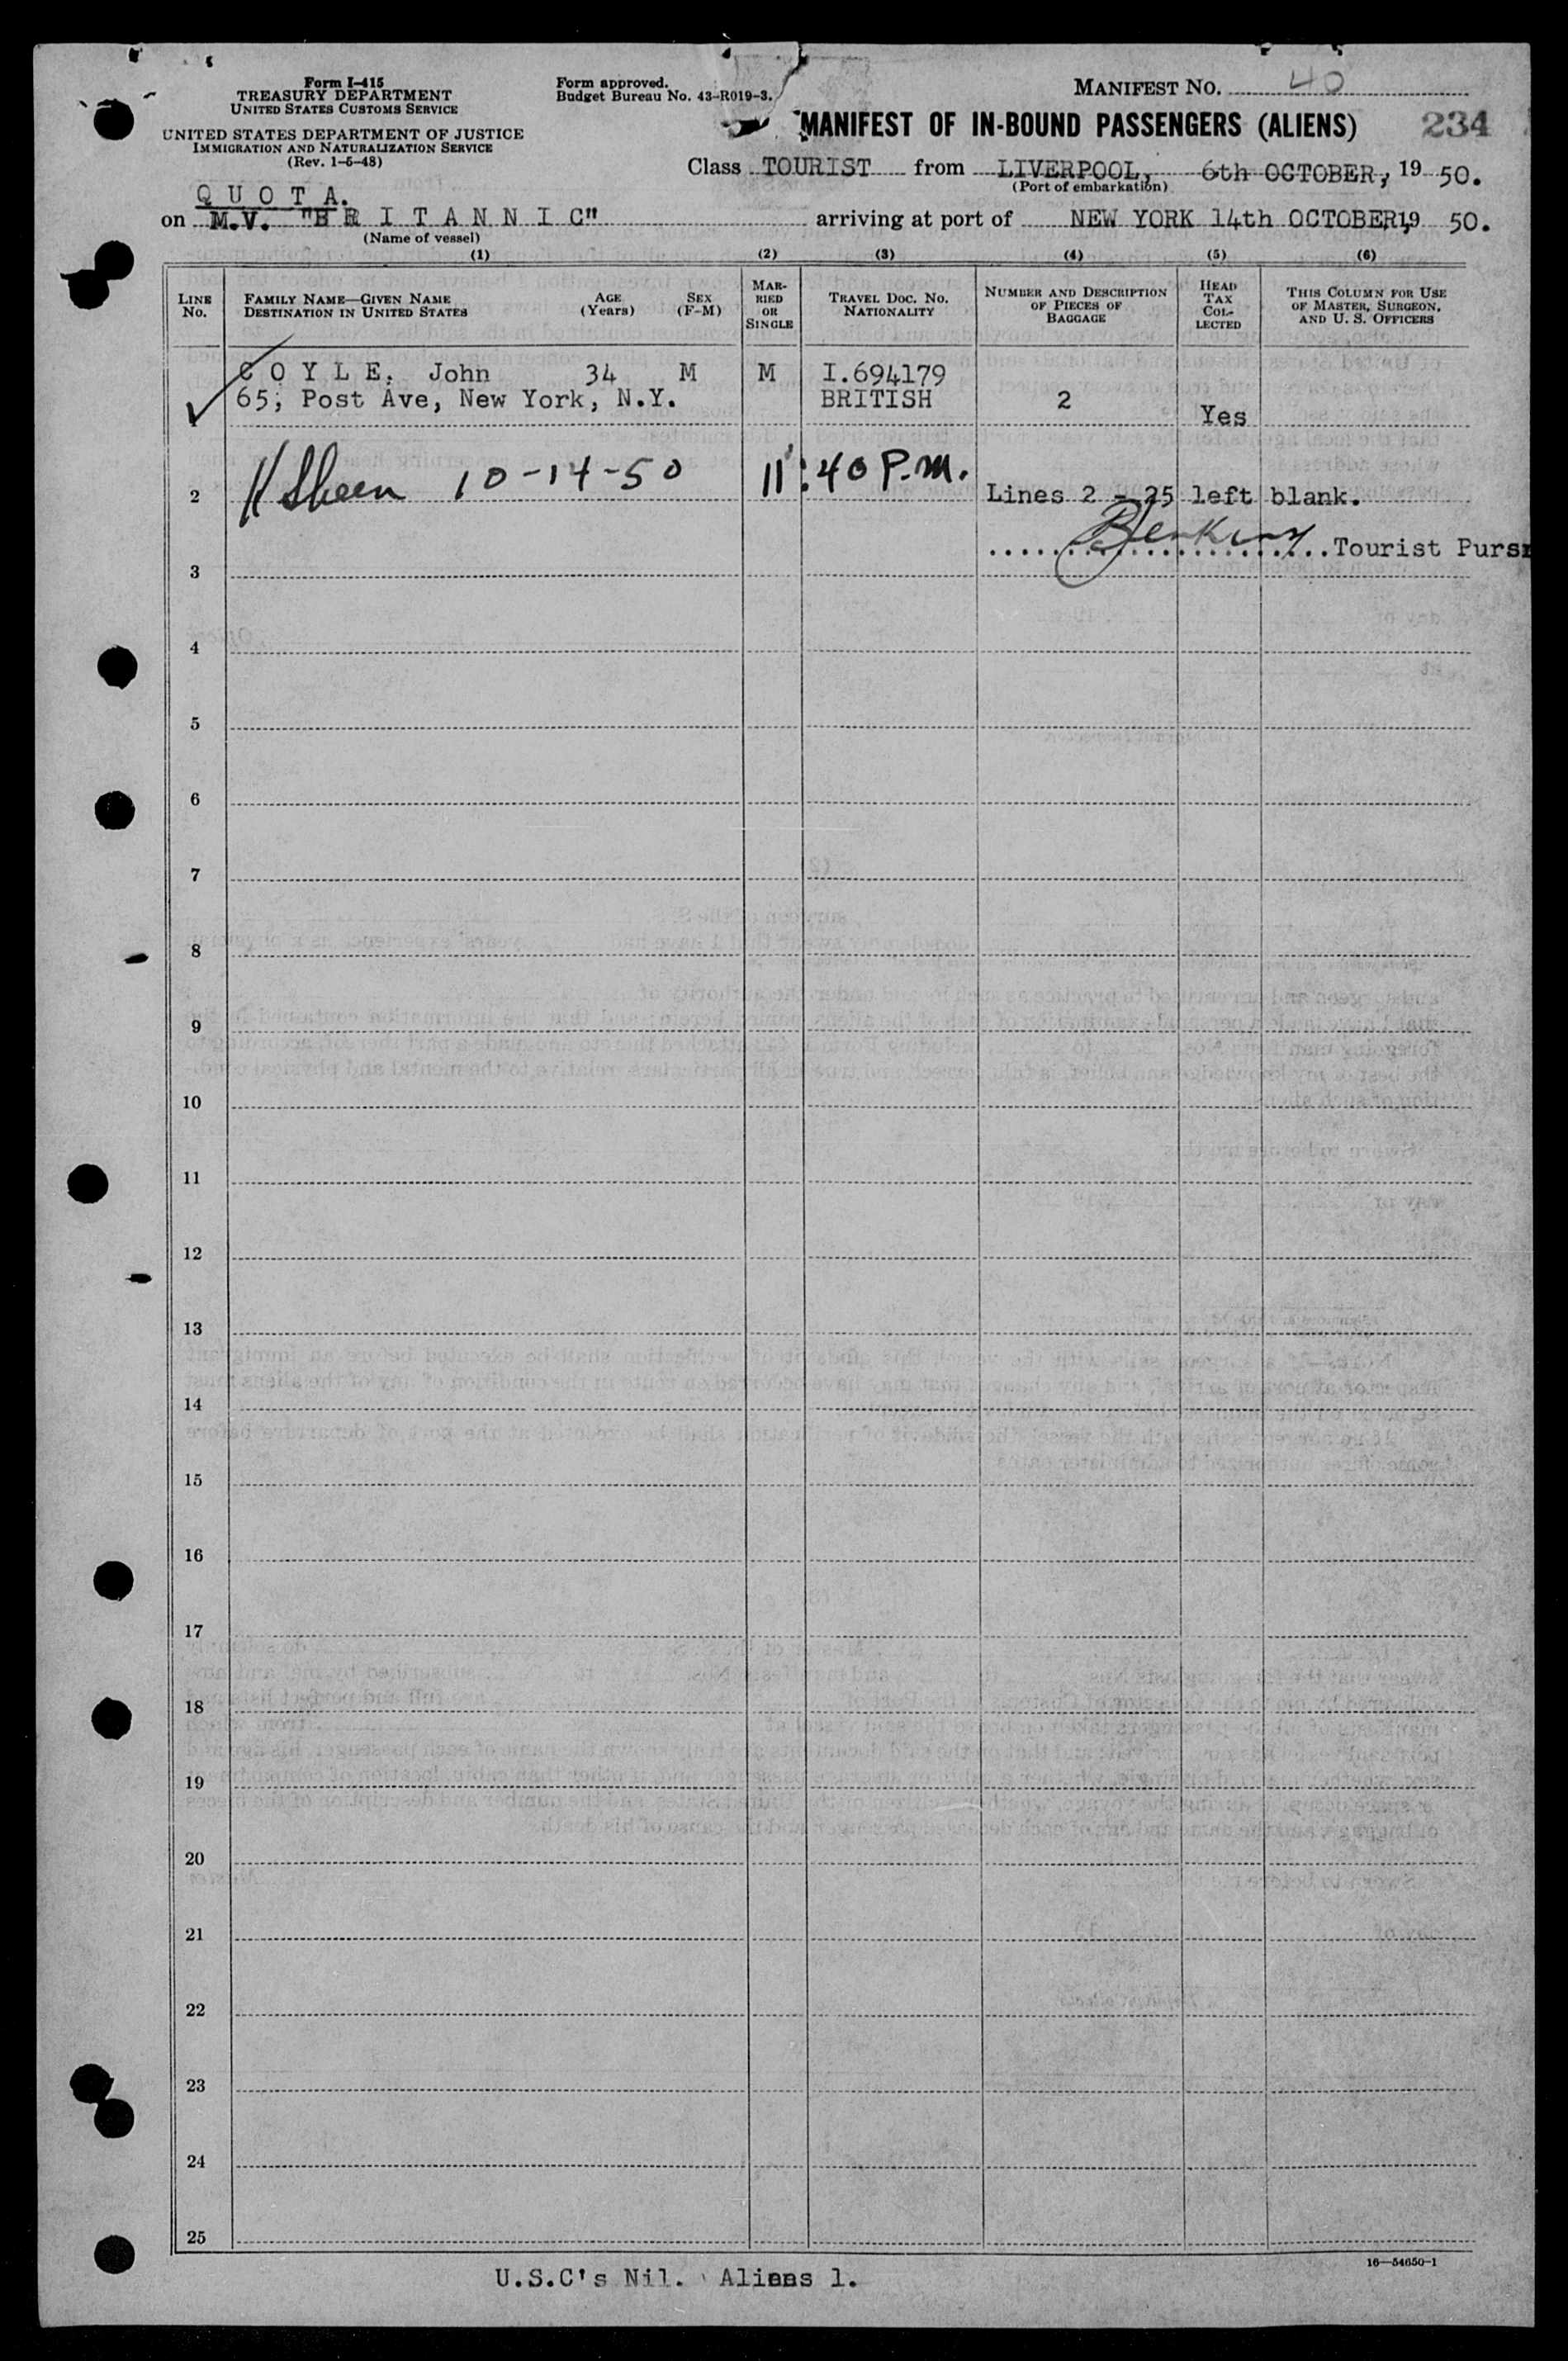 Form I-415
TREASURY DEPARTMENT
UNITED STATES CUSTOMS SERVICE
UNITED STATES DEPARTMENT OF JUSTICE
IMMIGRATION AND NATURALIZATION SERVICE
(Rev. 1-6-48)
Form approved.
Budget Bureau No. 43-R019-3.
MANIFEST NO. 40
MANIFEST OF IN-BOUND PASSENGERS (ALIENS) 234
Class TOURIST from LIVERPOOL, 6th OCTOBER, 19 50.
(Port of embarkation)
Q U O T A.
on M.V. "B R I T A N N I C" arriving at port of NEW YORK 14th OCTOBER, 19 50.
(Name of vessel)
(1) (2) (3) (4) (5) (6)
LINE No. FAMILY NAME—GIVEN NAME DESTINATION IN UNITED STATES AGE (Years) SEX (F-M) MARRIED OR SINGLE TRAVEL DOC. NO. NATIONALITY NUMBER AND DESCRIPTION OF PIECES OF BAGGAGE HEAD TAX COLLECTED THIS COLUMN FOR USE OF MASTER, SURGEON, AND U. S. OFFICERS
C O Y L E. John 34 M M I.694179
65; Post Ave, New York, N.Y. BRITISH 2 Yes
1
2 Sheen 10-14-50 11:40 P.M. Lines 2 - 25 left blank.
Tourist Pursr
3
4
5
6
7
8
9
10
11
12
13
14
15
16
17
18
19
20
21
22
23
24
25
16—54650-1
U.S.C's Nil. Aliens 1.